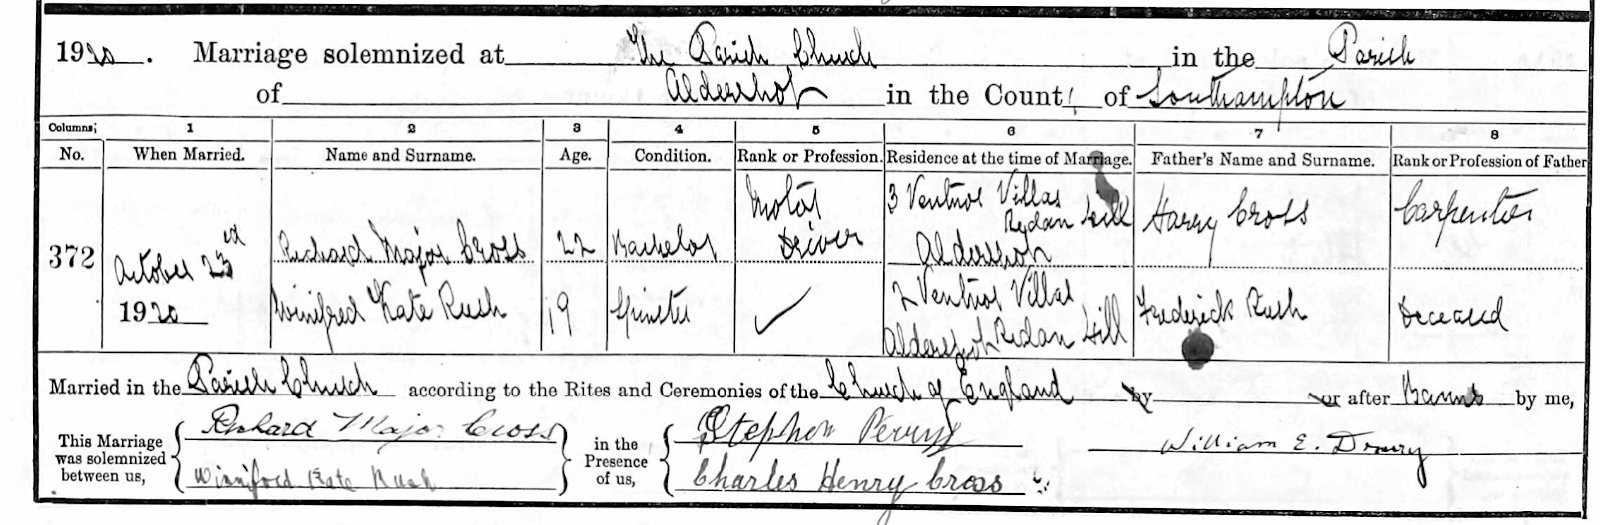 1920. Marriage solemnized at The Parish Church in the Parish
of Aldershot in the County of Southampton
Columns; 1 2 3 4 5 6 7 8
No. When Married. Name and Surname. Age. Condition. Rank or Profession. Residence at the time of Marriage. Father's Name and Surname. Rank or Profession of Father
372 October 23rd 1920 Richard Major Cross 22 Bachelor Motor Driver 3 Ventnor Villas Redan Hill Aldershot Harry Cross Carpenter
Winifred Kate Rush 19 Spinster ✓ 2 Ventnor Villas Aldershot Redan Hill Frederick Rush Deceased
Married in the Parish Church according to the Rites and Ceremonies of the Church of England by or after Banns by me,
This Marriage was solemnized between us, Richard Major Cross in the Presence of us, Stephen Perry William E. Drury
Winnifred Kate Rush Charles Henry Cross